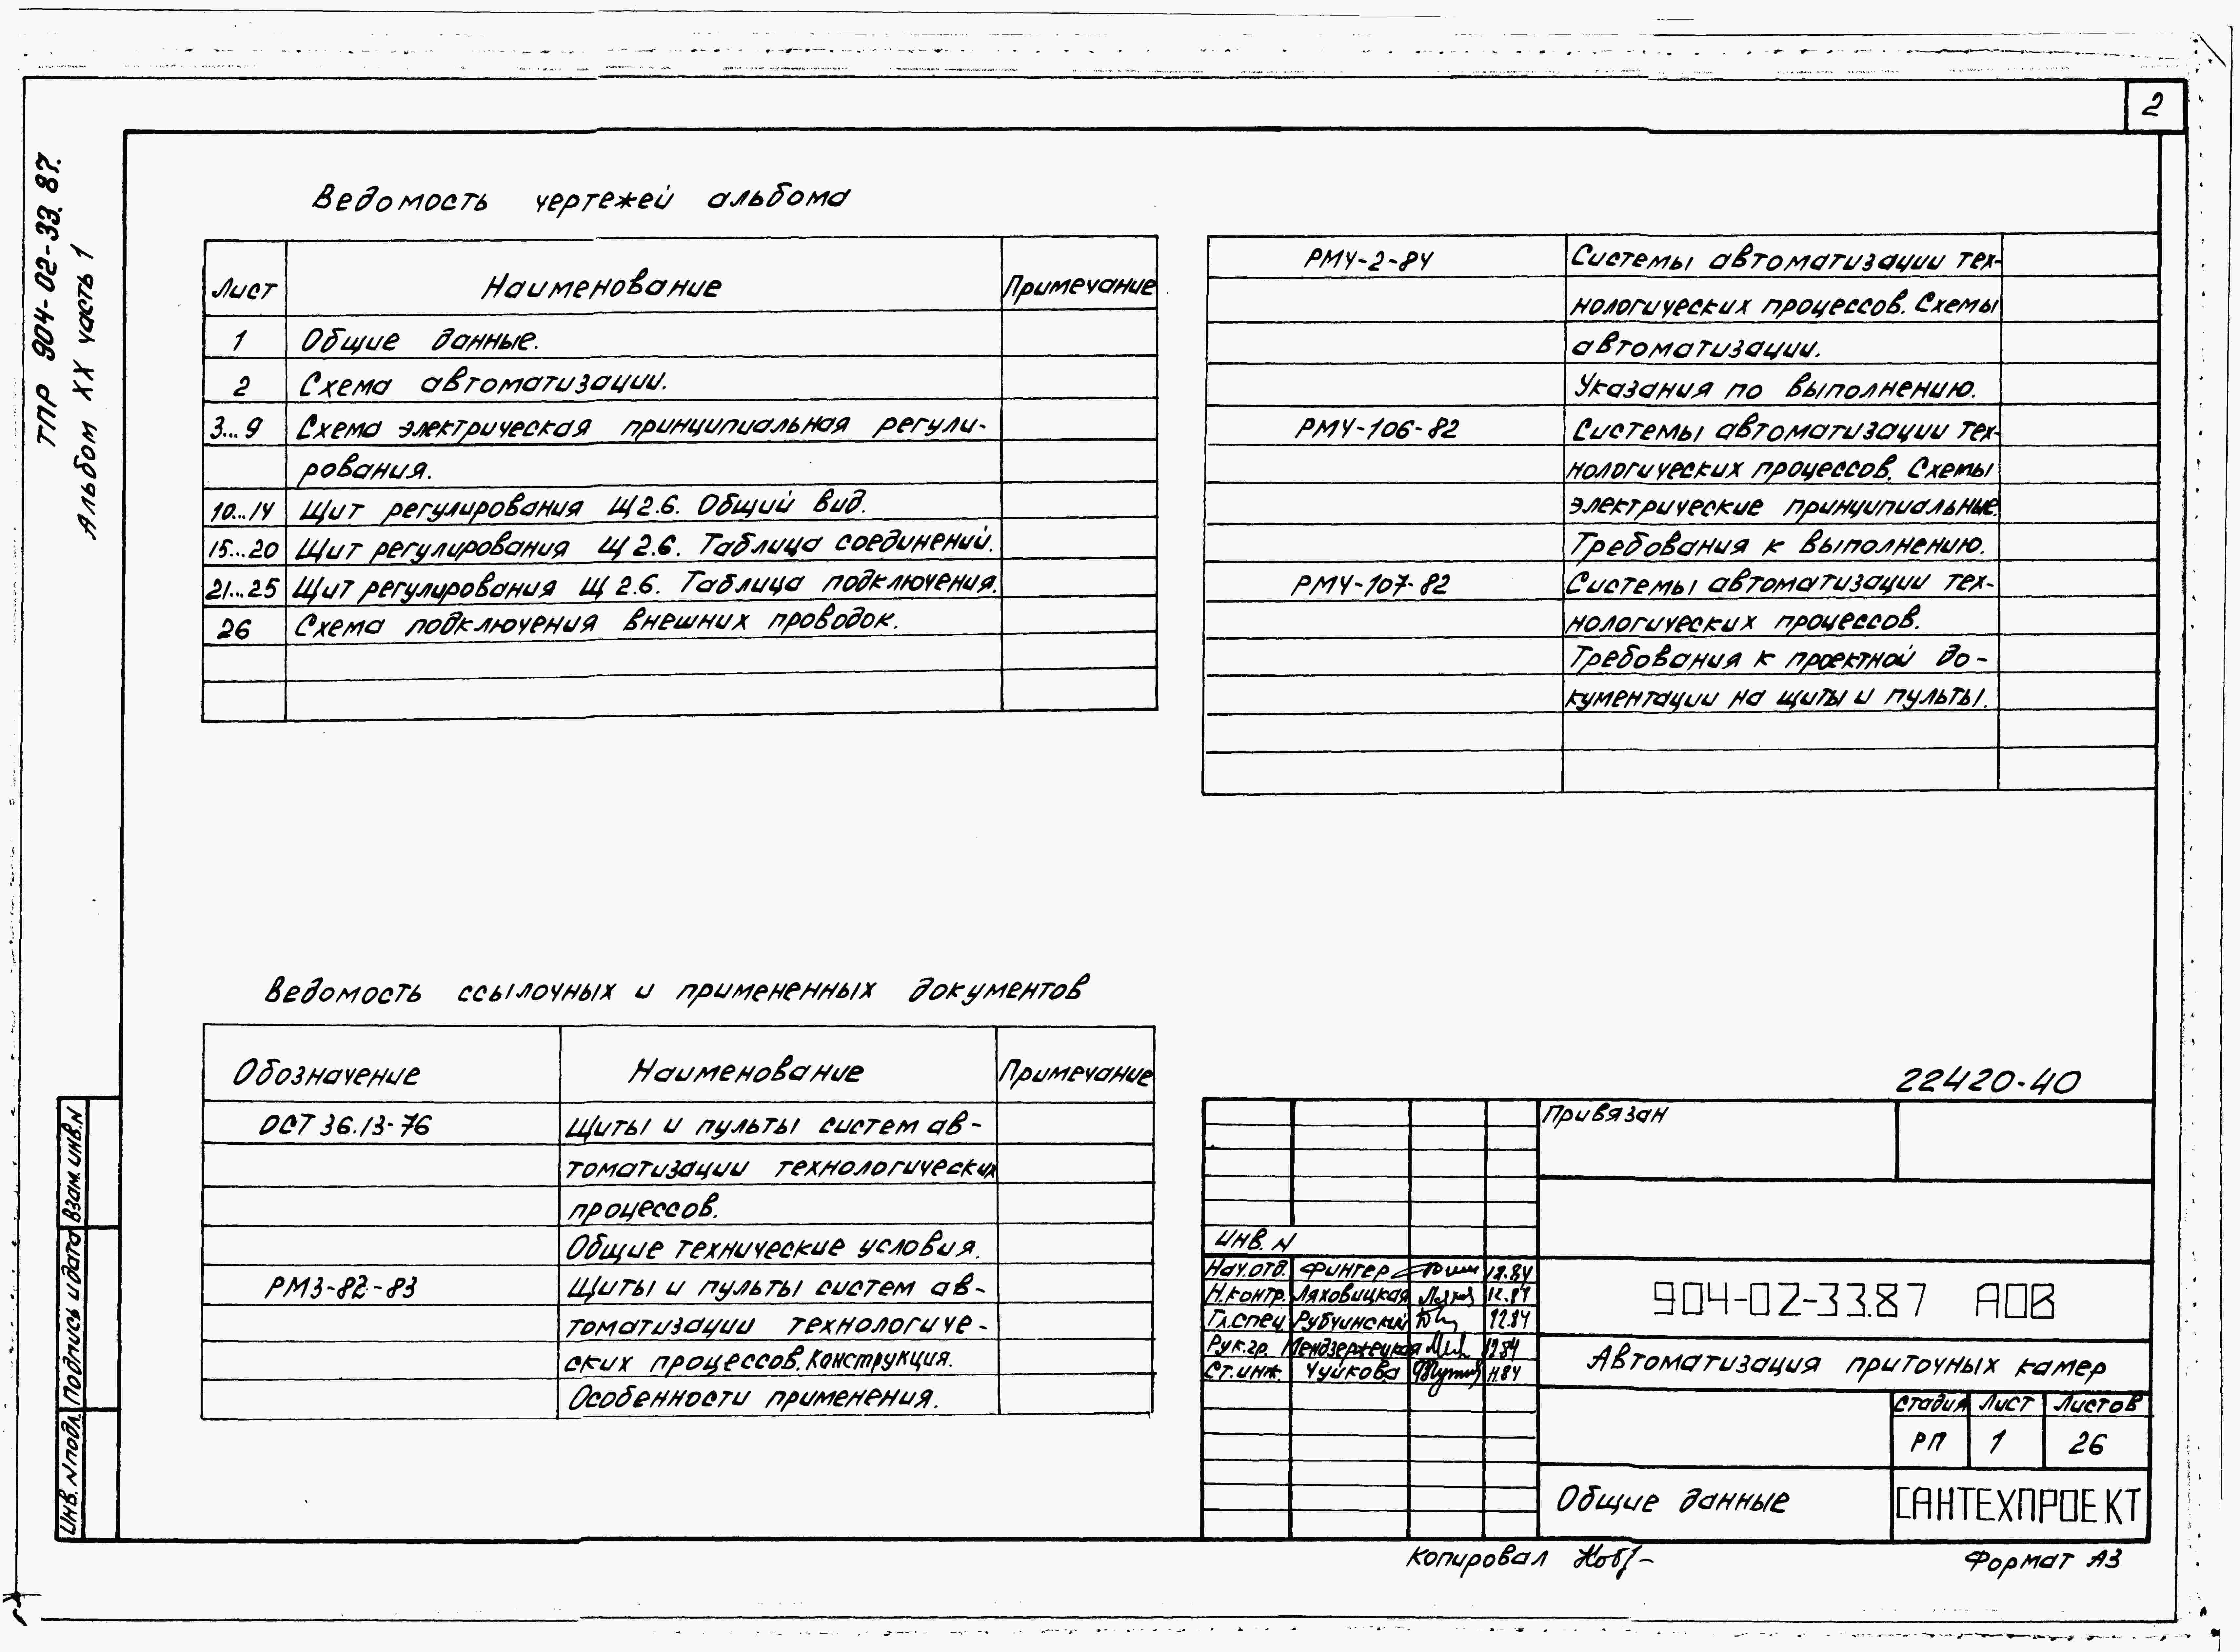 2
ТПР 904-02-33.87.
Альбом XX часть 1
Ведомость чертежей альбома
Лист Наименование Примечание
1 Общие данные.
2 Схема автоматизации.
3...9 Схема электрическая принципиальная регули-
рования.
10...14 Щит регулирования Щ2.6. Общий вид.
15...20 Щит регулирования Щ2.6. Таблица соединений.
21...25 Щит регулирования Щ2.6. Таблица подключения.
26 Схема подключения внешних проводок.
РМ4-2-84 Системы автоматизации тех-
нологических процессов. Схемы
автоматизации.
Указания по выполнению.
РМ4-106-82 Системы автоматизации тех-
нологических процессов. Схемы
электрические принципиальные.
Требования к выполнению.
РМ4-107-82 Системы автоматизации тех-
нологических процессов.
Требования к проектной до-
кументации на щиты и пульты.
Ведомость ссылочных и примененных документов
Обозначение Наименование Примечание
ОСТ 36.13-76 Щиты и пульты систем ав-
томатизации технологических
процессов.
Общие технические условия.
РМ3-82-83 Щиты и пульты систем ав-
томатизации технологиче-
ских процессов. Конструкция.
Особенности применения.
22420-40
Привязан
Инв. N
Нач.отд. Фингер 12.84
Н.контр. Ляховицкая 12.84
Гл.спец. Рубчинский 12.84
Рук.гр. Мендзержецкая 12.84
Ст.инж. Чуйкова
904-02-33.87 АОВ
Автоматизация приточных камер
Стадия Лист Листов
РП 1 26
Общие данные
САНТЕХПРОЕКТ
Копировал
Формат А3
Взам. инв. N
Подпись и дата
Инв. N подл.